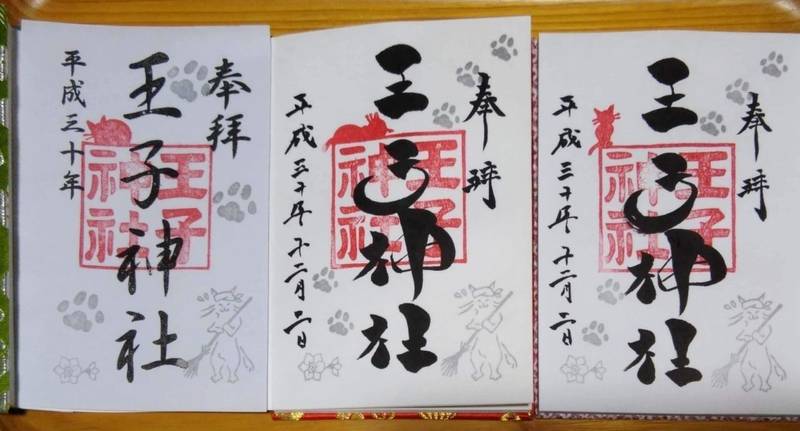 奉拝
王子神社
王子神社
平成三十年
奉拝
王子神社
王子神社
平成三十年十二月二日
奉拝
王子神社
王子神社
平成三十年十二月二日